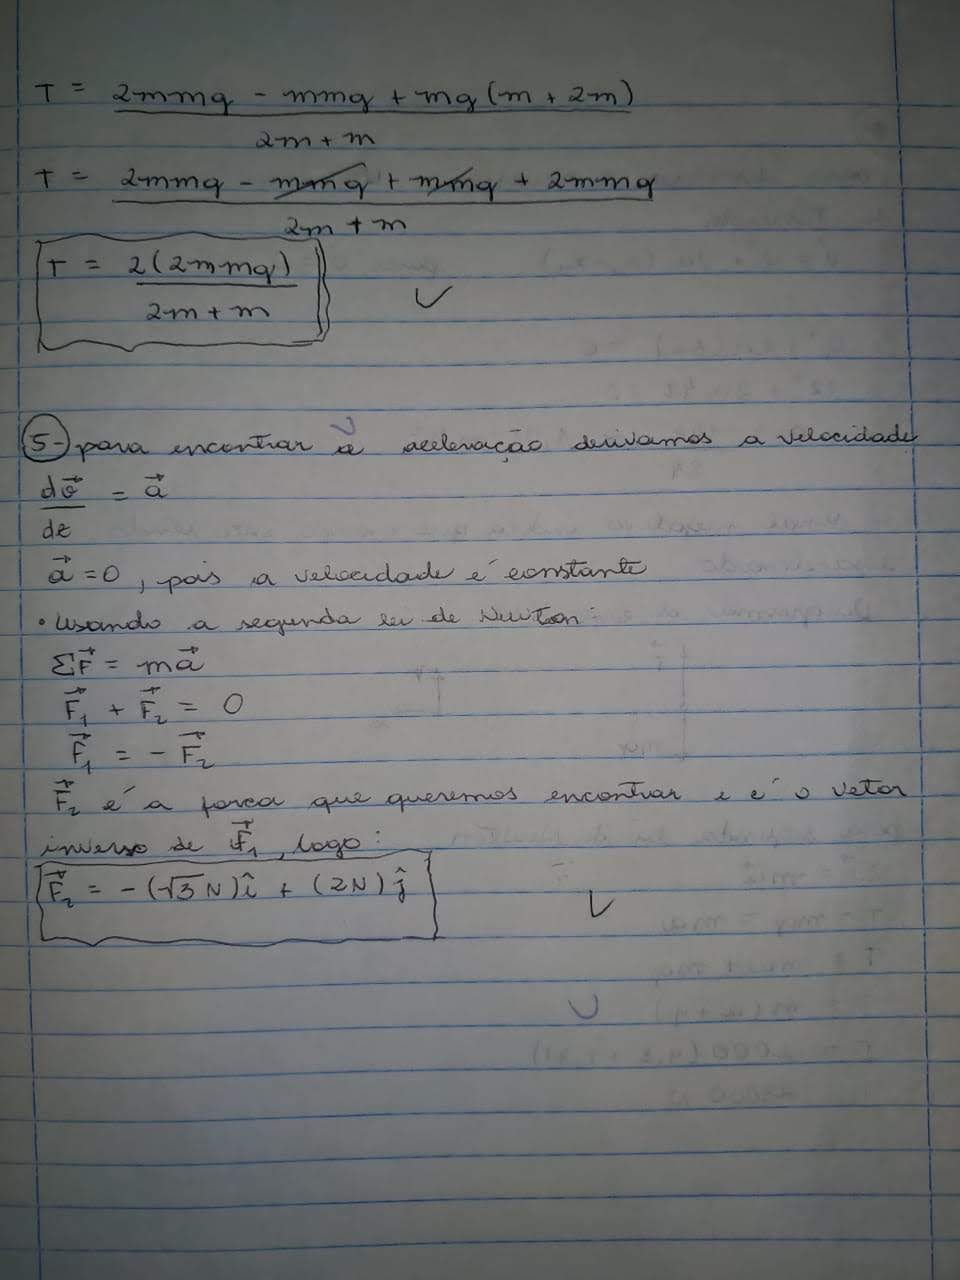 T = 2mmg - mmg + mg (m + 2m)
2m + m
T = 2mmg - mmg + mmg + 2mmg
2m + m
T = 2(2mmg)
2m + m
5- para encontrar a aceleração derivamos a velocidade
dv⃗ = a⃗
dt
a⃗ = 0, pois a velocidade é constante
• Usando a segunda lei de Newton:
ΣF⃗ = ma⃗
F⃗₁ + F⃗₂ = 0
F⃗₁ = - F⃗₂
F⃗₂ é a força que queremos encontrar e é o vetor
inverso de F⃗₁, logo:
F⃗₂ = -(√3 N) î + (2N) ĵ